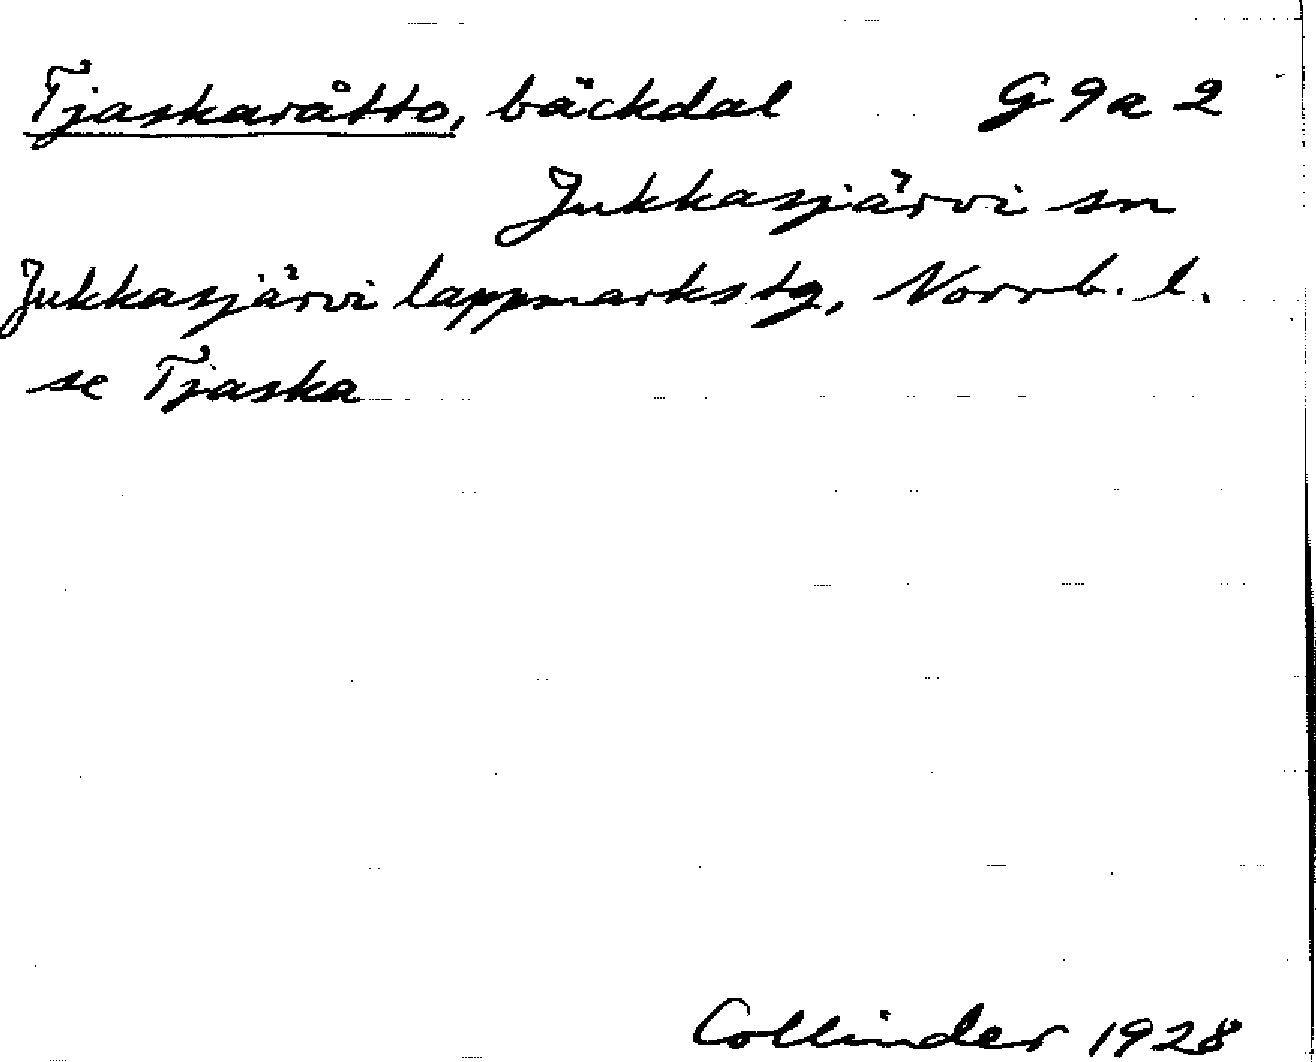 Tjaskaråtto, bäckdal G9a 2
Jukkasjärvi sn
Jukkasjärvi lappmarkstg, Norrb. l.
se Tjaska
Collinder 1928